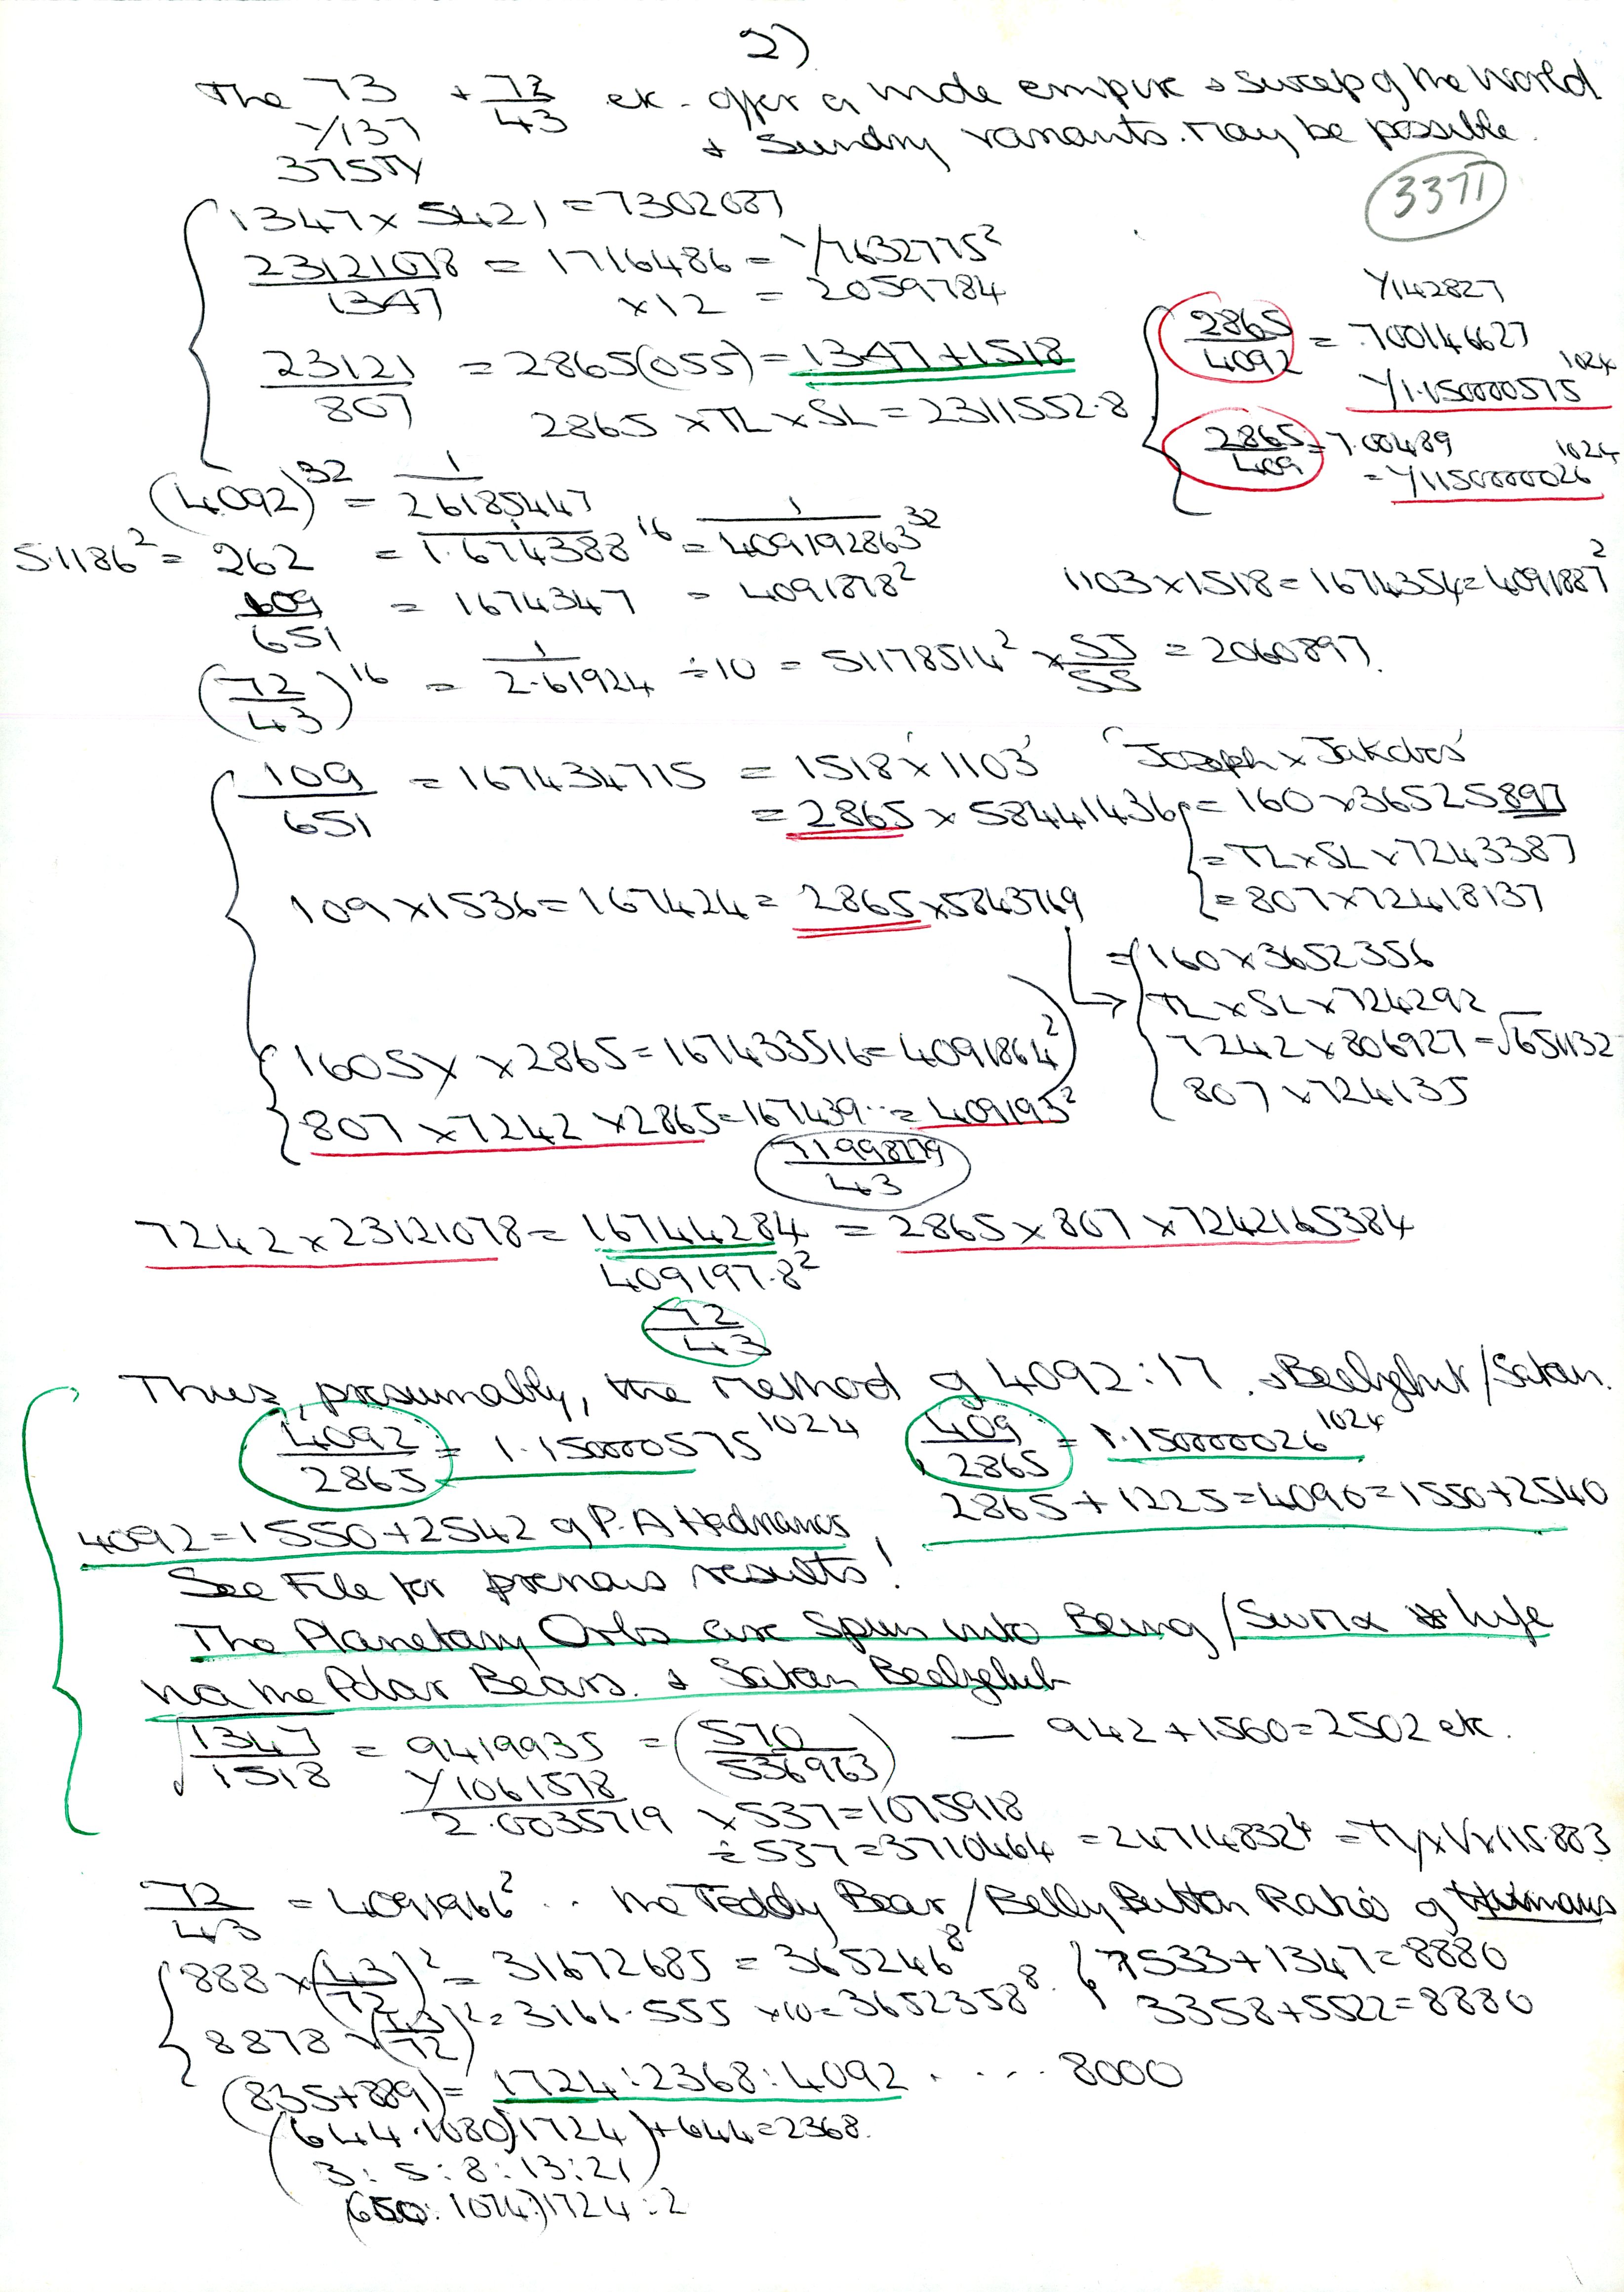 2)
The 73 + 72/43 etc - offer a wide empire & sweep of the World
Y137 & Sundry variants may be possible.
375πY
337π
1347 x 5421 = 7302087
23121078/1347 = 1716486 = Y7632775²
x12 = 2059784
23121/807 = 2865(055) = 1347+1518
2865 x TL x SL = 2311552.8
Y142827
2865/4092 = .700146627
Y1.150000575 1024
2865/409 = 7.00489
= Y1150000026 1024
(4.092)³² = 1/26185447
5.1186² = 262 = 1/1.674388 16 = 1/409192863 32
109/651 = 1674347 = 4091878²
1103 x 1518 = 1674354 = 4091887²
(72/43)16 = 1/2.61924 ÷10 = 51178514² x 55/55 = 2060897.
109/651 = 167434715 = 1518 x 1103 'Joseph x Jakobs'
= 2865 x 58441436 = 160 x 36525897
= TL x SL x 7243387
= 807 x 72418137
109 x 1536 = 167424 = 2865 x 5843769
= 160 x 3652356
TL x SL x 724292
7242 x 806927 = √651132
807 x 724135
1605Y x 2865 = 167433516 = 4091864²
807 x 7242 x 2865 = 167439.. = 409193²
71998779/43
7242 x 23121078 = 16744284 = 2865 x 807 x 7242165384
409197.8²
72/43
Thus, presumably, the method of 4092:17. & Beelzebub/Satan.
4092/2865 = 1.150000575 1024
409/2865 = 1.150000026 1024
4092 = 1550+2542 of P.A Hadrianus
2865 + 1225 = 4090 = 1550+2540
See File for previous results!
The Planetary Orbs are spun into Being / Swirl life
via the Polar Bears. & Satan Beelzebub
√1347/1518 = 9419935 = (570/536963) — 942 + 1560 = 2502 etc.
Y1061578
2.0035719 x 537 = 1075918
÷ 537 = 3710464 = 247148324 = TY x V x 115.883
72/43 = 4091966² .. the Teddy Bear / Belly Button Ratio of Humans
888 x (43/72)² = 31672685 = 365246⁸
7533 + 1347 = 8880
8878 x (43/72)² = 3166.555 x10 = 3652358⁸
3358 + 5522 = 8880
(835+889) = 1724 : 2368 : 4092 . . . . . 8000
(644.1080)1724) + 644 = 2368.
3 : 5 : 8 : 13 : 21)
(650: 1074)1724 : 2